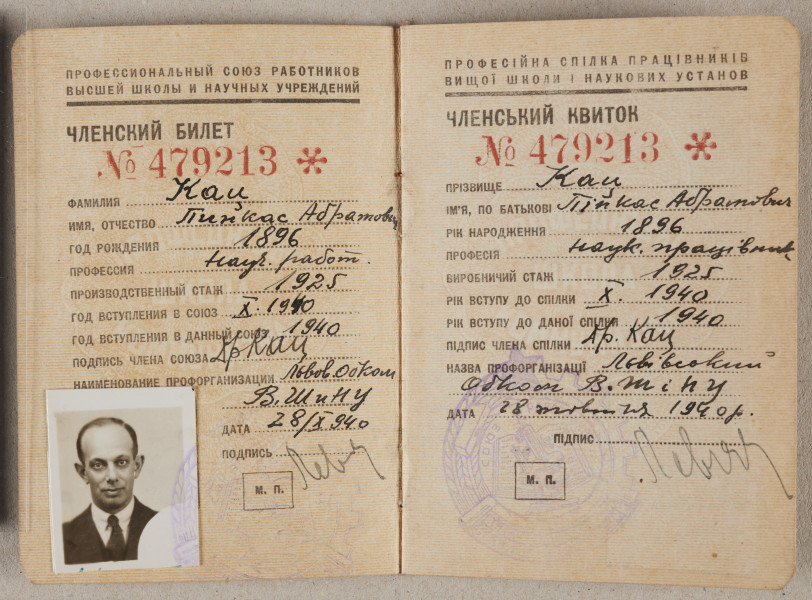 ПРОФЕССИОНАЛЬНЫЙ СОЮЗ РАБОТНИКОВ
ВЫСШЕЙ ШКОЛЫ И НАУЧНЫХ УЧРЕЖДЕНИЙ
ЧЛЕНСКИЙ БИЛЕТ
№ 479213 *
ФАМИЛИЯ Кац
ИМЯ, ОТЧЕСТВО Пинкас Абрамович
ГОД РОЖДЕНИЯ 1896
ПРОФЕССИЯ Науч. работ.
ПРОИЗВОДСТВЕННЫЙ СТАЖ 1925
ГОД ВСТУПЛЕНИЯ В СОЮЗ X. 1940
ГОД ВСТУПЛЕНИЯ В ДАННЫЙ СОЮЗ 1940
ПОДПИСЬ ЧЛЕНА СОЮЗА Др Кац
НАИМЕНОВАНИЕ ПРОФОРГАНИЗАЦИИ Львов. Обком
В.Ш и НУ
ДАТА 28/X 940
ПОДПИСЬ
М. П.
ПРОФЕСІЙНА СПІЛКА ПРАЦІВНИКІВ
ВИЩОЇ ШКОЛИ І НАУКОВИХ УСТАНОВ
ЧЛЕНСЬКИЙ КВИТОК
№ 479213 *
ПРІЗВИЩЕ Кац
ІМ'Я, ПО БАТЬКОВІ Пінкас Абрамович
РІК НАРОДЖЕННЯ 1896
ПРОФЕСІЯ наук. працівник
ВИРОБНИЧИЙ СТАЖ 1925
РІК ВСТУПУ ДО СПІЛКИ X. 1940
РІК ВСТУПУ ДО ДАНОЇ СПІЛКИ 1940
ПІДПИС ЧЛЕНА СПІЛКИ Др. Кац
НАЗВА ПРОФОРГАНІЗАЦІЇ Львівський
Обком В.Ш і НУ
ДАТА 28 жовтня 1940 р.
ПІДПИС
М. П.